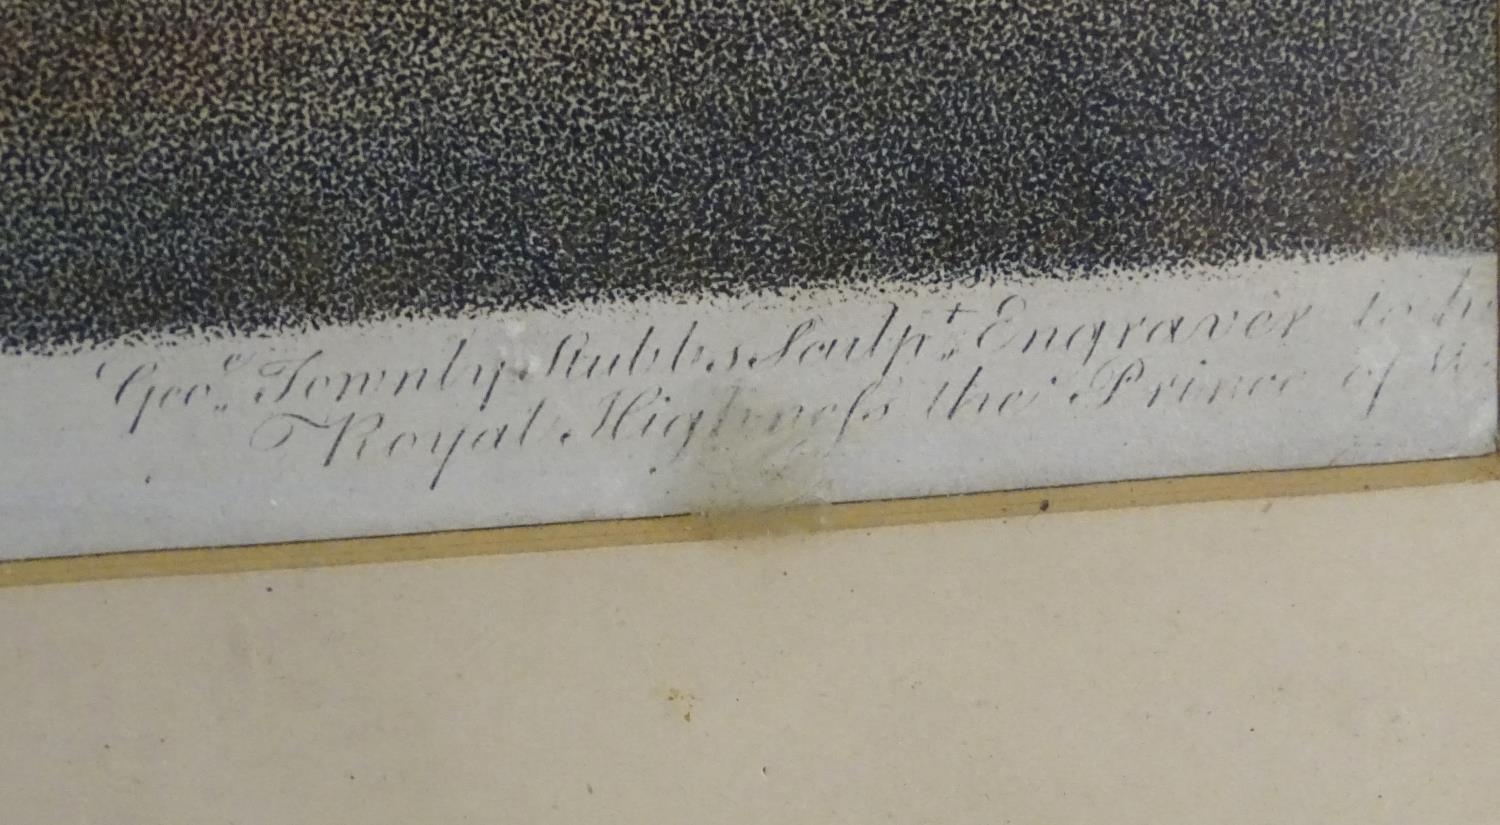 Geo.ᵉ Townly Stubbs Sculp.ᵗ Engraver to h
Royal Highneſs the Prince of W